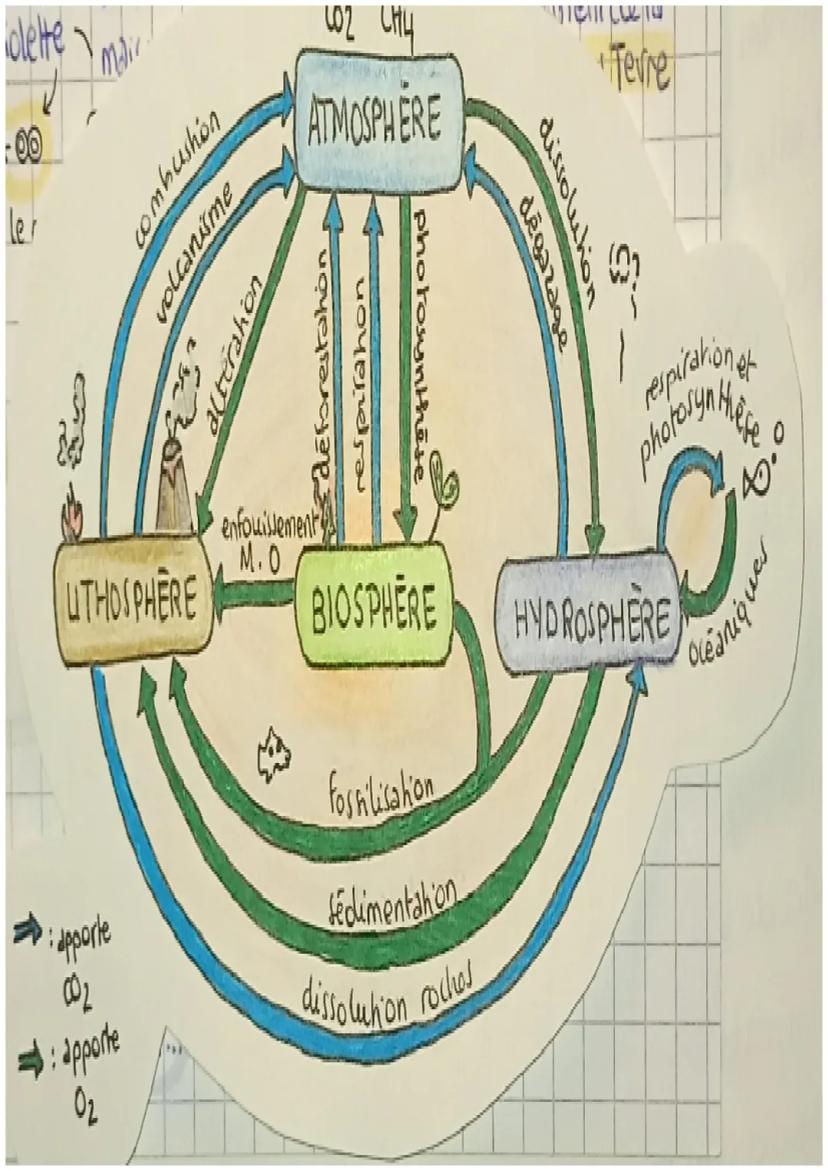 CO2 CH4
Terre
ATMOSPHÈRE
combustion
volcanisme
altération
déforestation
respiration
photosynthèse
dissolution
dégazage
respiration et
photosynthèse
océaniques
enfouissement
M.O
LITHOSPHÈRE
BIOSPHÈRE
HYDROSPHÈRE
fossilisation
sédimentation
dissolution roches
⇒ : apporte
CO2
⇒ : apporte
O2